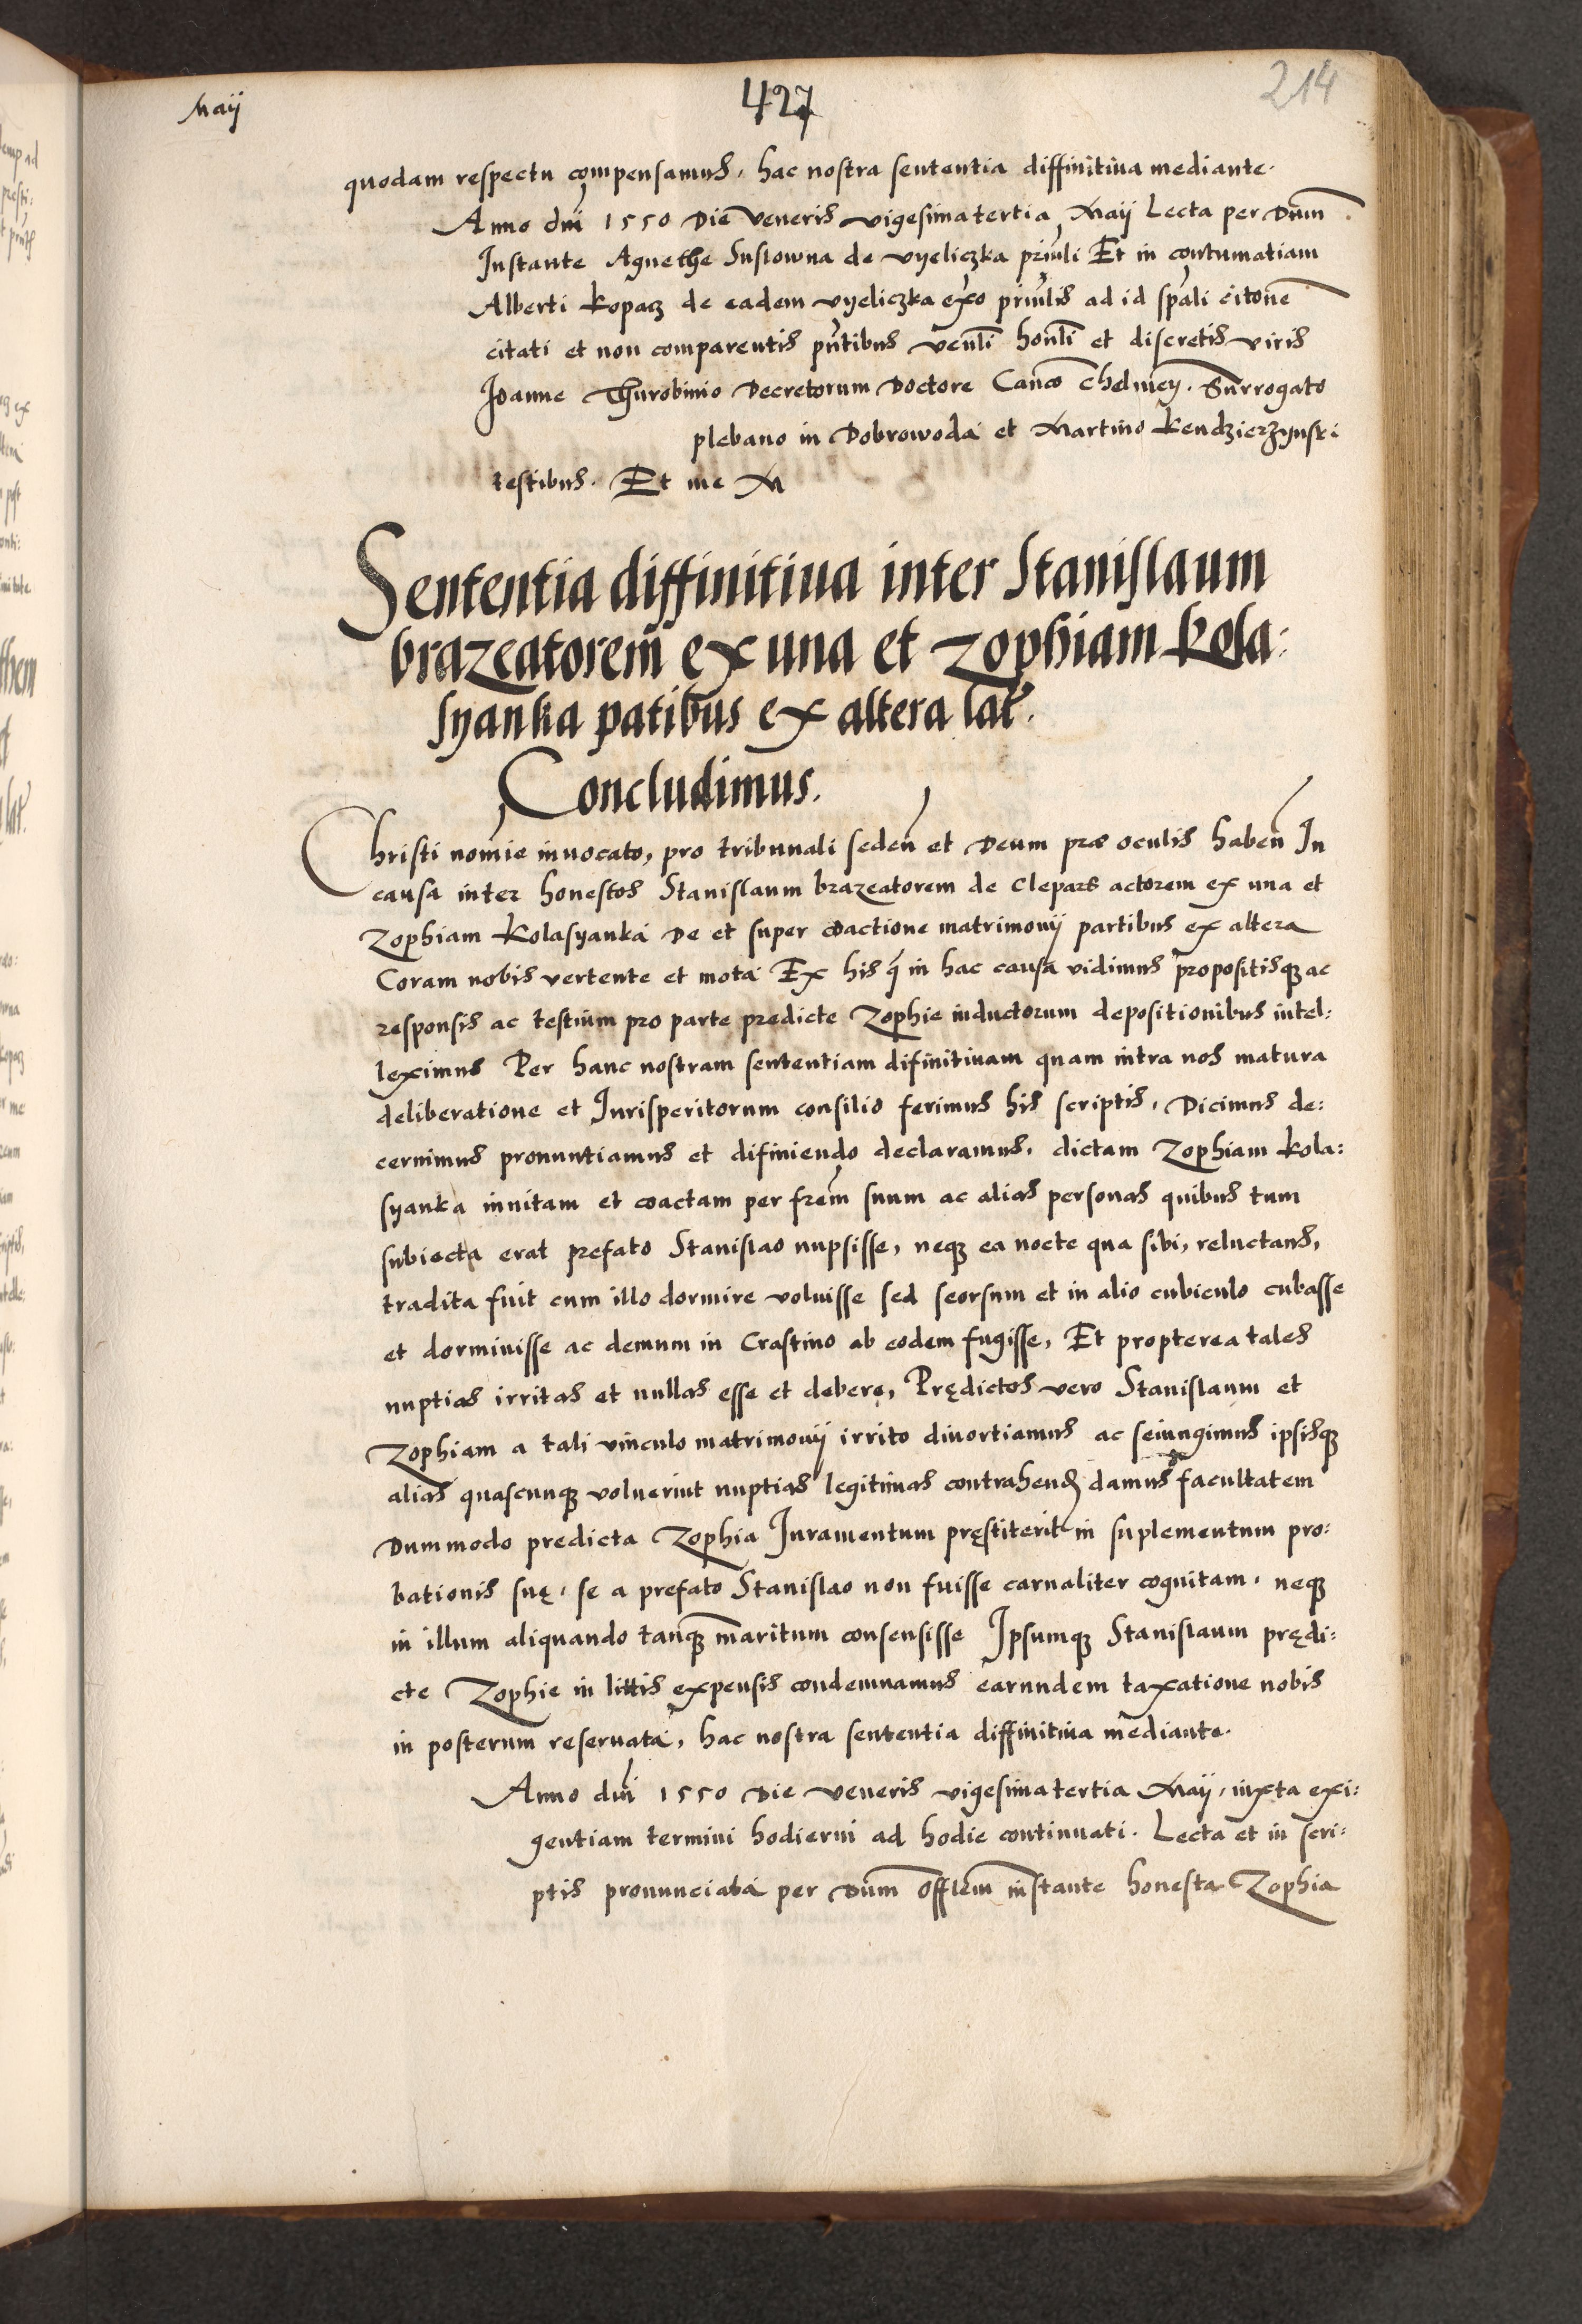 Maij
427
214
quodam respectu compensamus, hac nostra sententia diffinitiva mediante.
Anno dni 1550 Die Veneris vigesima tertia Maij Lecta per Dnm
Instante Agnethe Suslowna de Vyeliczka prinli Et in contumatiam
Alberti Kopacz de eadem Vyeliczka exo prinlis ad id spali citone
citati et non comparentis pntibus venli honli et discretis viris
Joanne Thurobinio Decretorum Doctore Canco Chelmen. Surrogato
plebano in Dobrowoda et Martino Kendzierzynski
testibus. Et me M
Sententia diffinitiva inter Stanislaum
brazeatorem ex una et Zophiam Kola:
syanka patibus ex altera lat.
Concludimus.
Christi nomie invocato, pro tribunali seden et Deum prae oculis haben In
causa inter honestos Stanislaum brazeatorem de Clepars actorem ex una et
Zophiam Kolasyanka De et super coactione matrimonij partibus ex altera
Coram nobis vertente et mota Ex his q in hac causa vidimus propositisq ac
responsis ac testium pro parte predicte Zophie inductorum depositionibus intel:
leximus Per hanc nostram sententiam difinitivam quam intra nos matura
deliberatione et Jurisperitorum consilio ferimus his scriptis, Dicimus de:
cernimus pronuntiamus et difiniendo declaramus, dictam Zophiam Kola:
syanka invitam et coactam per frem suum ac alias personas quibus tum
subiecta erat prefato Stanislao nupsisse, neq ea nocte qua sibi, reluctans,
tradita fuit cum illo dormire voluisse sed seorsum et in alio cubiculo cubasse
et dormivisse ac demum in Crastino ab eodem fugisse, Et propterea tales
nuptias irritas et nullas esse et debere, Prędictos vero Stanislaum et
Zophiam a tali vinculo matrimonij irrito divortiamus ac seiungimus ipsisq
alias quascunq voluerint nuptias legitimas contrahend damus facultatem
Dummodo predicta Zophia Juramentum pręstiterit in suplementum pro:
bationis suę, se a prefato Stanislao non fuisse carnaliter cognitam, neq
in illum aliquando tanq maritum consensisse Ipsumq Stanislaum prędi:
cte Zophie in littis expensis condemnamus earundem taxatione nobis
in posterum reservata, hac nostra sententia diffinitiva mediante.
Anno dni 1550 Die Veneris vigesima tertia Maij, iuxta exi:
gentiam termini hodierni ad hodie continuati. Lecta et in scri:
ptis pronunciata per Dnm Offlem instante honesta Zophia